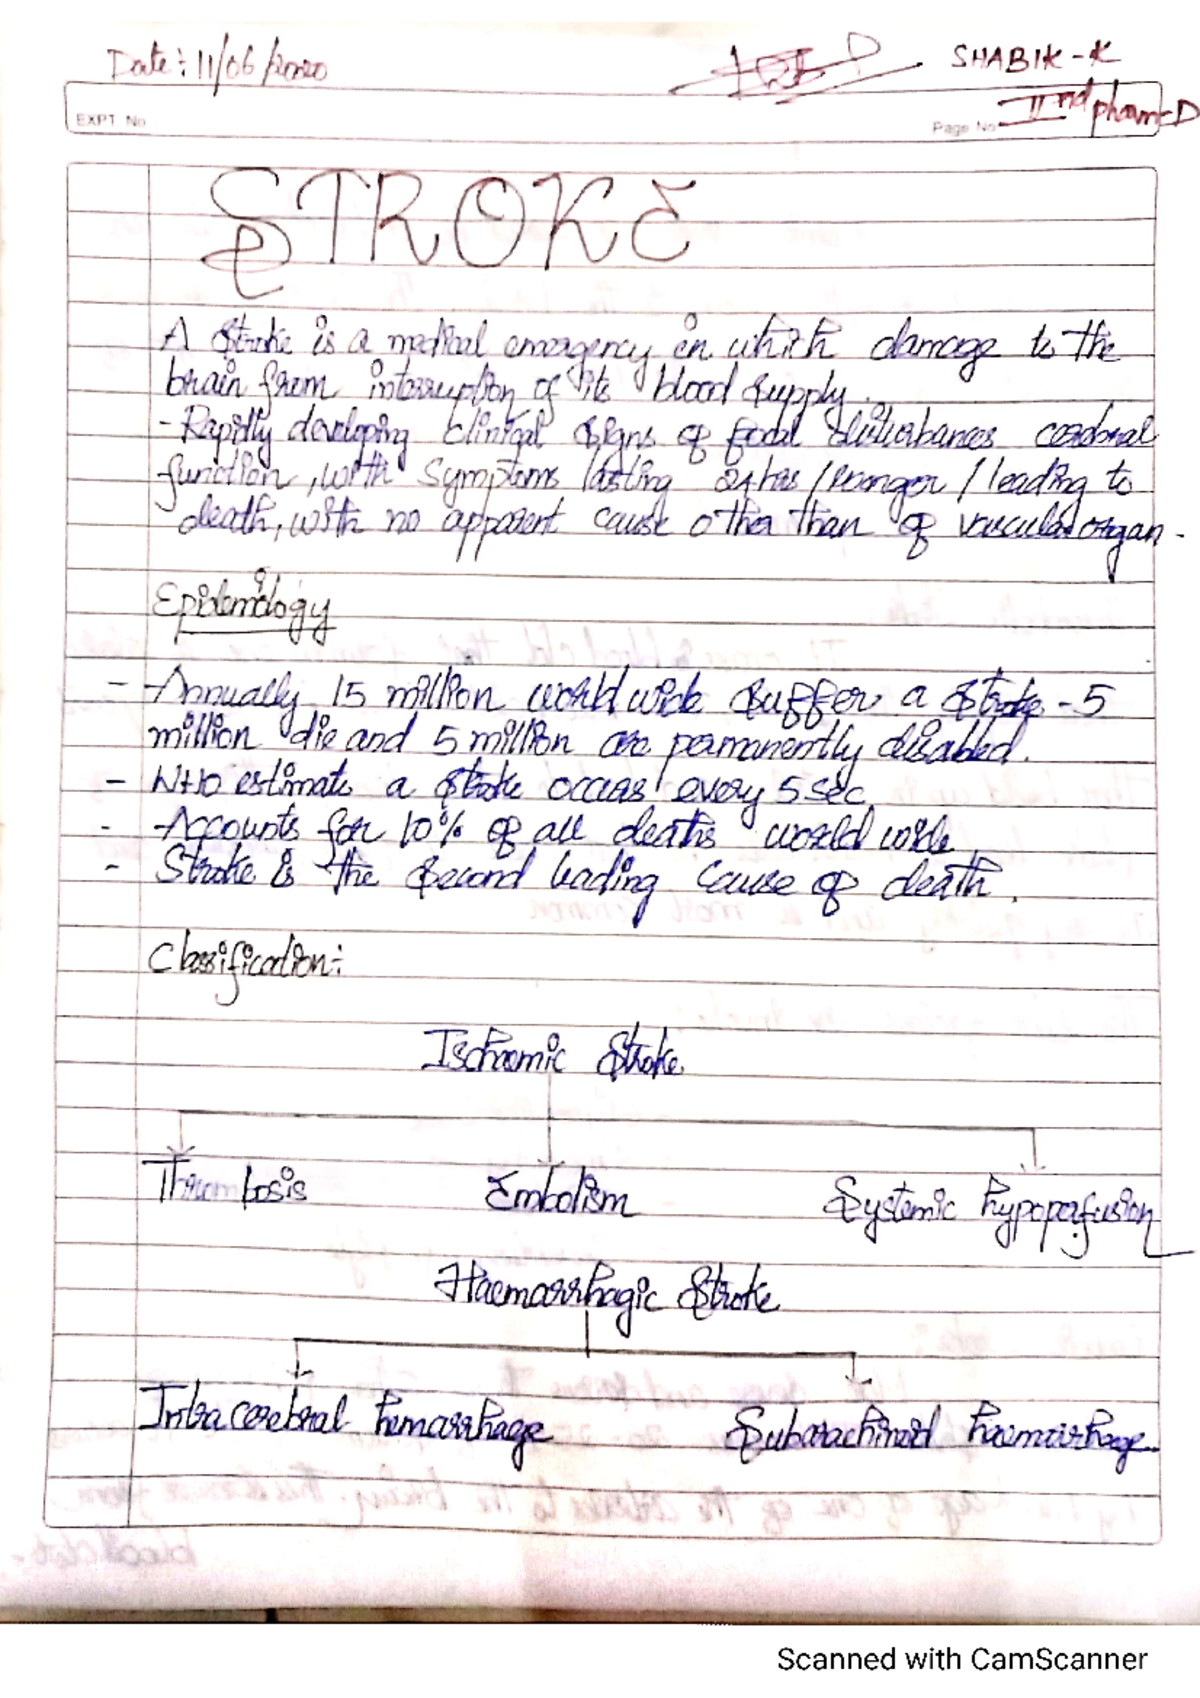 Date: 11/06/2020
SHABIK-K
IInd pharm-D
EXPT. No
Page No
STROKE
A Stroke is a medical emergency in which damage to the
brain from interruption of its blood supply.
- Rapidly developing clinical signs of focal disturbances cerebral
function, with symptoms lasting 24hrs / longer / leading to
death, with no apparent cause other than of vascular organ.
Epidemiology
- Annually 15 million world wide suffer a stroke - 5
million die and 5 million are permanently disabled.
- WHO estimate a stroke occurs every 5 sec.
- Accounts for 10% of all deaths world wide
- Stroke is the second leading cause of death.
Classification:
Ischaemic Stroke
Thrombosis Embolism Systemic hypoperfusion
Haemorrhagic Stroke
Intracerebral hemorrhage Subarachinoid haemorrhage
Scanned with CamScanner